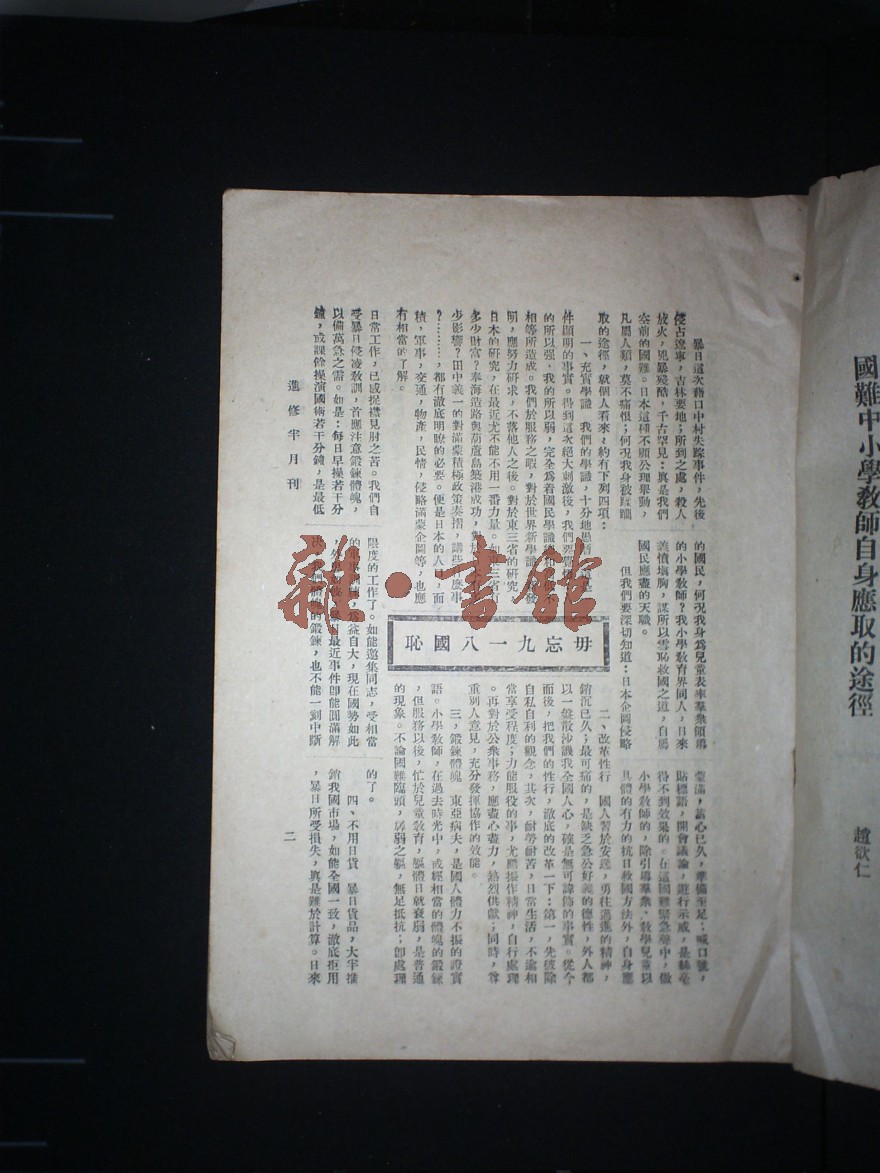 國難中小學敎師自身應取的途徑
趙欲仁
暴日這次藉口中村失踪事件,先後
侵占遼寧,吉林要地;所到之處,殺人
放火,兇暴殘酷,千古罕見:真是我們
空前的國難。日本這種不顧公理舉動,
凡屬人類,莫不痛恨;何況我身被蹂躪
的國民,何況我身為兒童表率羣衆領導
的小學敎師?我小學敎育界同人,日來
義憤塡胸,謀所以雪恥救國之道,自屬
國民應盡的天職。
但我們要深切知道:日本企圖侵略
蒙滿,心已久,準備至足;喊口號,
貼標語,開會議論,遊行示威,是絲毫
得不到效果的。在這國難緊急聲中,做
小學敎師的,除引導羣衆、敎學兒童以
具體的有力的抗日救國方法外,自身應
取的途徑,就個人看來,約有下列四項:
一、充實學識 我們的學識,十分地
件顯明的事實。得到這次絕大刺激後,我們要覺
的所以强,我的所以弱,完全為着國民學識
相等所造成。我們於服務之暇,對於世界新學識
明,應努力研求,不落他人之後。對於東三省的研究,
日本的研究,在最近尤不能不用一番力量。如東三省有
多少財富?奉海造路與葫蘆島築港成功,對於
少影響?田中義一的對滿蒙積極政策奏摺,講些什麼事
?………,都有澈底明瞭的必要。便是日本的人口,面
積,軍事,交通,物產,民情,侵略滿蒙企圖等,也應
有相當的了解。
毋忘九一八國恥
二、改革性行 國人習於安逸,勇往邁進的精神,
銷沉已久;最可痛的,是缺乏急公好義的德性,外人都
以一盤散沙譏我全國人心,確是無可諱飾的事實。從今
而後,把我們的性行,澈底的改革一下:第一,先破除
自私自利的觀念,其次,耐勞耐苦,日常生活,不逾相
當享受程度;力能服役的事,尤應振作精神,自行處理
。再對於公衆事務,應盡心盡力,熱烈供獻;同時,尊
重別人意見,充分發揮協作的效能。
三、鍛鍊體魄 東亞病夫,是國人體力不振的證實
語。小學敎師,在過去時光中,或經相當的體魄的鍛鍊
,但服務以後,忙於兒童敎育,軀體日就衰弱,是普通
的現象。不論國難臨頭,孱弱之軀,無足抵抗;卽處理
日常工作,已感捉襟見肘之苦。我們自
受暴日侵凌敎訓,首應注意鍛鍊體魄,
以備萬急之需。如是:每日早操若干分
鐘,或課餘操演國術若干分鐘,是最低
限度的工作了。如能邀集同志,受相當
的軍事訓練,獲益自大,現在國勢如此
最近事件卽能圓滿解
決,我們體魄的鍛鍊,也不能一刻中斷
的了。
四、不用日貨 暴日貨品,大半推
銷我國市場,如能全國一致,澈底拒用
,暴日所受損失,真是難於計算。日來
進修半月刊
二
雜·書館